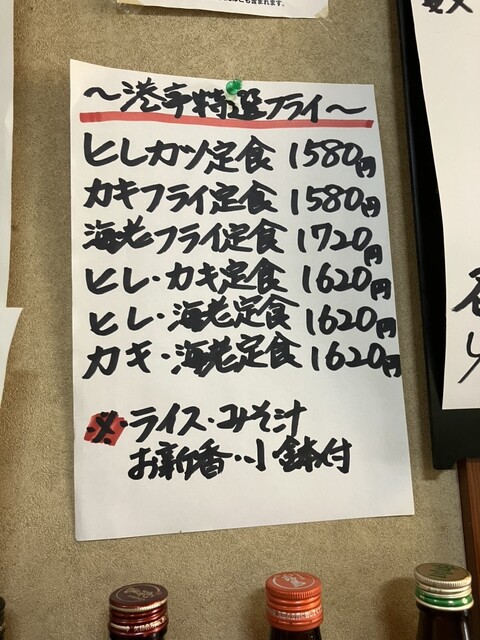 〜港亭特選フライ〜
ヒレカツ定食 1580円
カキフライ定食 1580円
海老フライ定食 1720円
ヒレ・カキ定食 1620円
ヒレ・海老定食 1620円
カキ・海老定食 1620円
※ライス・みそ汁
お新香・小鉢付